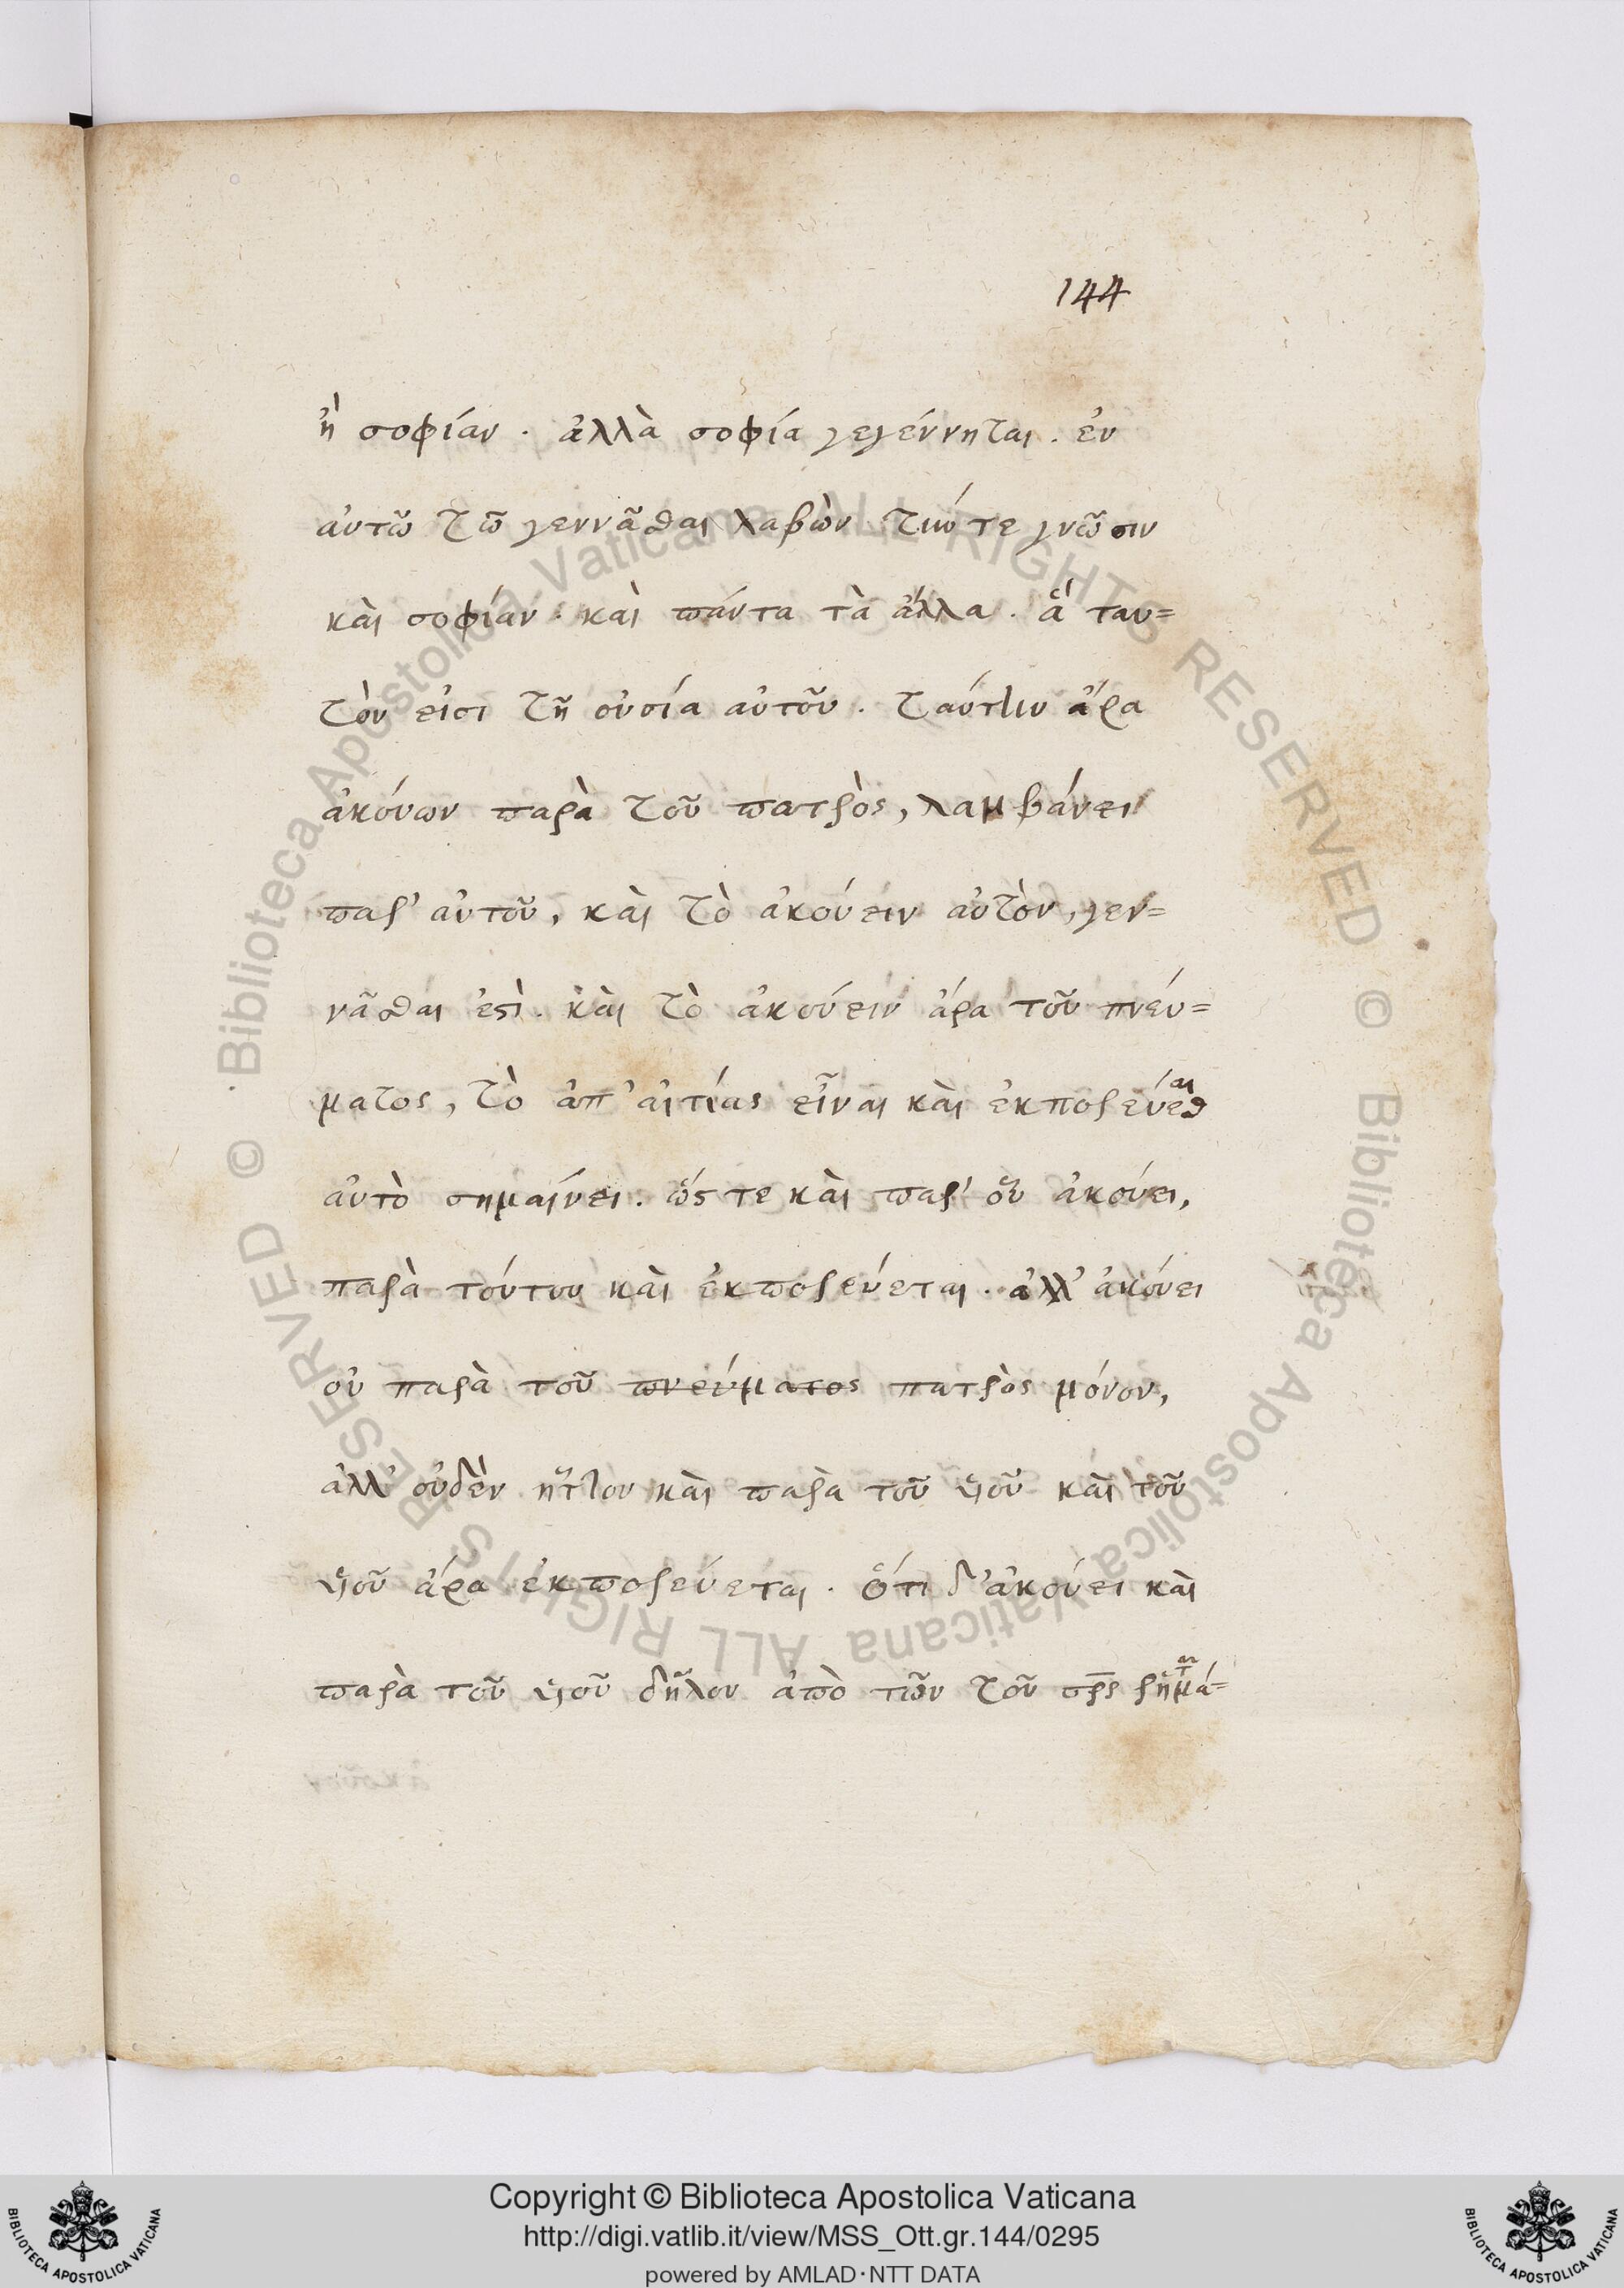 144
ἢ σοφίαν · ἀλλὰ σοφία γεγέννηται · ἐν
αὐτῶ τῶ γεννᾶσθαι λαβὼν τήν τε γνῶσιν
καὶ σοφίαν · καὶ πάντα τὰ ἄλλα · ἃ ταυ=
τὸν εἰσι τῆ οὐσία αὐτοῦ · ταύτην ἄρα
ἀκούων παρὰ τοῦ πατρὸς, λαμβάνει
παρ' αὐτοῦ, καὶ τὸ ἀκούειν αὐτὸν, γεν=
νᾶσθαι ἐστὶ · καὶ τὸ ἀκούειν ἄρα τοῦ πνεύ=
ματος, τὸ ἀπ' αἰτίας εἶναι καὶ ἐκπορεύεσθαι
αὐτὸ σημαίνει · ὥς τε καὶ παρ' οὗ ἀκούει,
παρὰ τούτου καὶ ἐκπορεύεται · ἀλλ' ἀκούει
οὐ παρὰ τοῦ πνεύματος πατρὸς μόνον,
ἀλλ' οὐδὲν ἧττον καὶ παρὰ τοῦ υἱοῦ καὶ τοῦ
υἱοῦ ἄρα ἐκπορεύεται · ὅτι δ' ἀκούει καὶ
παρὰ τοῦ υἱοῦ δῆλον ἀπὸ τῶν τοῦ σρς ῥημά=
Copyright © Biblioteca Apostolica Vaticana
http://digi.vatlib.it/view/MSS_Ott.gr.144/0295
powered by AMLAD·NTT DATA
BIBLIOTECA APOSTOLICA VATICANA
BIBLIOTECA APOSTOLICA VATICANA
© Biblioteca Apostolica Vaticana ALL RIGHTS RESERVED © Biblioteca Apostolica Vaticana ALL RIGHTS RESERVED